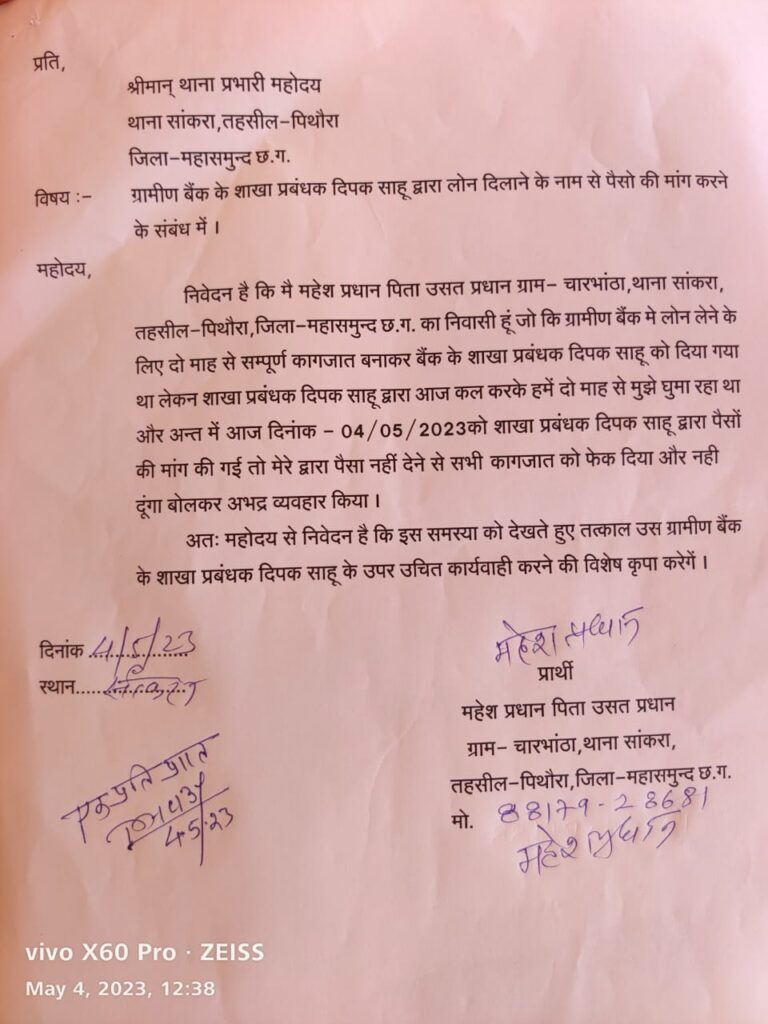 प्रति,
श्रीमान् थाना प्रभारी महोदय
थाना सांकरा,तहसील-पिथौरा
जिला-महासमुन्द छ.ग.
विषय :- ग्रामीण बैंक के शाखा प्रबंधक दिपक साहू द्वारा लोन दिलाने के नाम से पैसो की मांग करने
के संबंध में ।
महोदय,
निवेदन है कि मै महेश प्रधान पिता उसत प्रधान ग्राम- चारभांठा,थाना सांकरा,
तहसील-पिथौरा,जिला-महासमुन्द छ.ग. का निवासी हूं जो कि ग्रामीण बैंक मे लोन लेने के
लिए दो माह से सम्पूर्ण कागजात बनाकर बैंक के शाखा प्रबंधक दिपक साहू को दिया गया
था लेकन शाखा प्रबंधक दिपक साहू द्वारा आज कल करके हमें दो माह से मुझे घुमा रहा था
और अन्त में आज दिनांक - 04/05/2023को शाखा प्रबंधक दिपक साहू द्वारा पैसों
की मांग की गई तो मेरे द्वारा पैसा नहीं देने से सभी कागजात को फेक दिया और नही
दूंगा बोलकर अभद्र व्यवहार किया ।
अतः महोदय से निवेदन है कि इस समस्या को देखते हुए तत्काल उस ग्रामीण बैंक
के शाखा प्रबंधक दिपक साहू के उपर उचित कार्यवाही करने की विशेष कृपा करेगें ।
दिनांक 4/5/23
स्थान......
महेश प्रधान
प्रार्थी
महेश प्रधान पिता उसत प्रधान
ग्राम- चारभांठा,थाना सांकरा,
तहसील-पिथौरा,जिला-महासमुन्द छ.ग.
मो. 88179-28681
महेश प्रधान
एक प्रति प्राप्त
4.5.23
vivo X60 Pro · ZEISS
May 4, 2023, 12:38